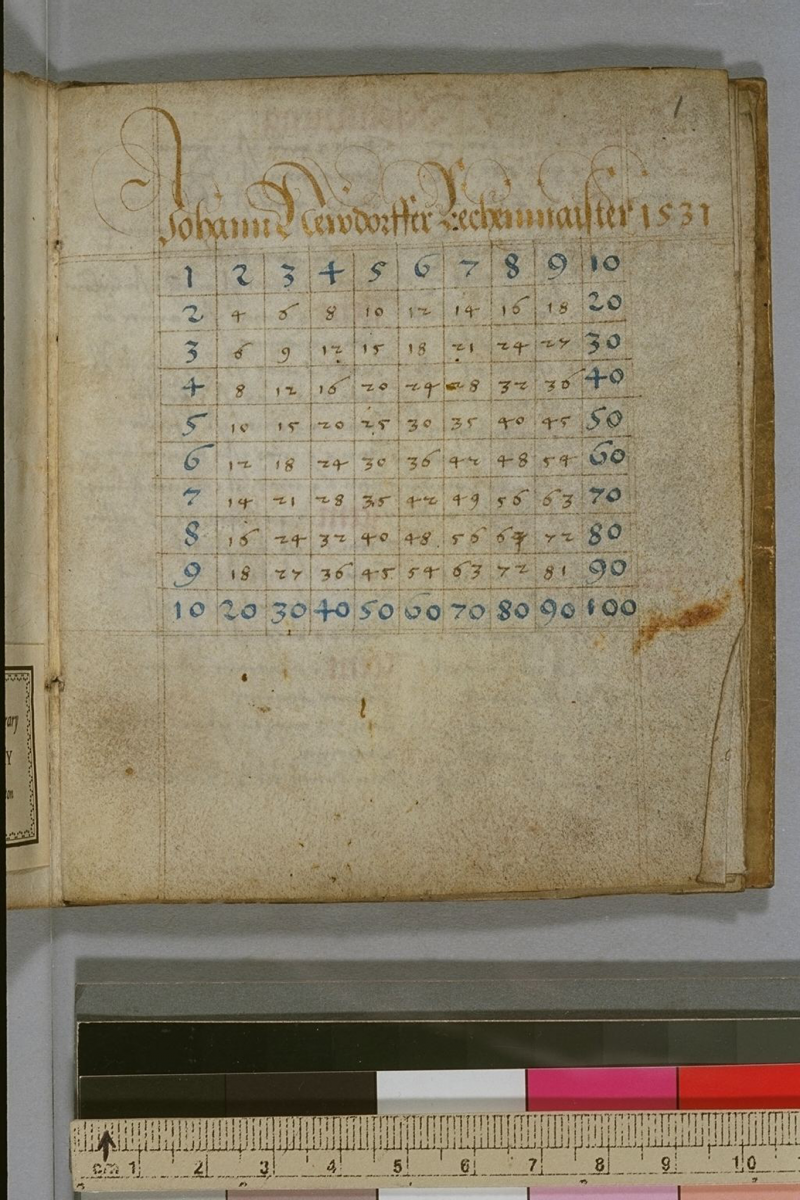 1
Johann Newdorffer Rechenmaister 1531
1 2 3 4 5 6 7 8 9 10
2 4 6 8 10 12 14 16 18 20
3 6 9 12 15 18 21 24 27 30
4 8 12 16 20 24 28 32 36 40
5 10 15 20 25 30 35 40 45 50
6 12 18 24 30 36 42 48 54 60
7 14 21 28 35 42 49 56 63 70
8 16 24 32 40 48 56 64 72 80
9 18 27 36 45 54 63 72 81 90
10 20 30 40 50 60 70 80 90 100
cm 1 2 3 4 5 6 7 8 9 10